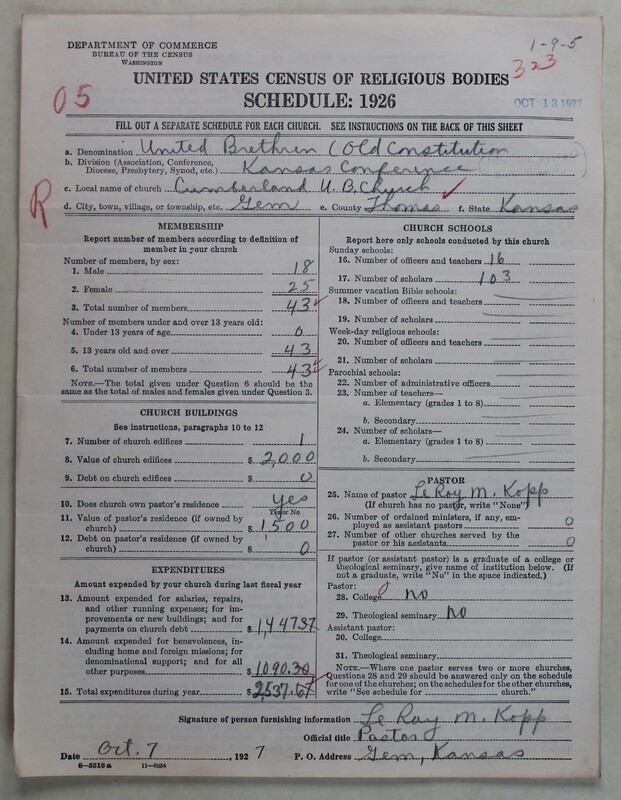 DEPARTMENT OF COMMERCE
BUREAU OF THE CENSUS
WASHINGTON
1-9-5
323
UNITED STATES CENSUS OF RELIGIOUS BODIES
05
SCHEDULE: 1926
OCT 13 1927
FILL OUT A SEPARATE SCHEDULE FOR EACH CHURCH. SEE INSTRUCTIONS ON THE BACK OF THIS SHEET
a. Denomination United Brethren (Old Constitution
b. Division (Association, Conference, Diocese, Presbytery, Synod, etc.) Kansas Conference )
c. Local name of church Cumberland U. B. Church
R
d. City, town, village, or township, etc. Gem e. County Thomas f. State Kansas
MEMBERSHIP
Report number of members according to definition of
member in your church
Number of members, by sex:
1. Male 18
2. Female 25
3. Total number of members 43
Number of members under and over 13 years old:
4. Under 13 years of age 0
5. 13 years old and over 43
6. Total number of members 43
NOTE.—The total given under Question 6 should be
same as the total of males and females given under Question 3.
CHURCH BUILDINGS
See instructions, paragraphs 10 to 12
7. Number of church edifices 1
8. Value of church edifices $ 2,000
9. Debt on church edifices $ 0
10. Does church own pastor's residence yes
Yes or No
11. Value of pastor's residence (if owned by
church) $ 1,500
12. Debt on pastor's residence (if owned by
church) $ 0
EXPENDITURES
Amount expended by your church during last fiscal year
13. Amount expended for salaries, repairs,
and other running expenses; for im-
provements or new buildings; and for
payments on church debt $ 1,447.37
14. Amount expended for benevolences, in-
cluding home and foreign missions; for
denominational support; and for all
other purposes $ 1,090.30
15. Total expenditures during year $ 2537.67
CHURCH SCHOOLS
Report here only schools conducted by this church
Sunday schools:
16. Number of officers and teachers 16
17. Number of scholars 103
Summer vacation Bible schools:
18. Number of officers and teachers
19. Number of scholars
Week-day religious schools:
20. Number of officers and teachers
21. Number of scholars
Parochial schools:
22. Number of administrative officers
23. Number of teachers—
a. Elementary (grades 1 to 8)
b. Secondary
24. Number of scholars—
a. Elementary (grades 1 to 8)
b. Secondary
PASTOR
25. Name of pastor LeRoy M. Kopp
(If church has no pastor, write "None")
26. Number of ordained ministers, if any, em-
ployed as assistant pastors 0
27. Number of other churches served by the
pastor or his assistants 0
If pastor (or assistant pastor) is a graduate of a college or
theological seminary, give name of institution below. (If
not a graduate, write "No" in the space indicated.)
Pastor:
28. College no
29. Theological seminary no
Assistant pastor:
30. College
31. Theological seminary
NOTE.—Where one pastor serves two or more churches,
Questions 28 and 29 should be answered only on the schedule
for one of the churches; on the schedules for the other churches,
write "See schedule for church."
Signature of person furnishing information Le Roy M. Kopp
Official title Pastor
Date Oct. 7, 1927 P. O. Address Gem, Kansas
8-5518a 11-9054